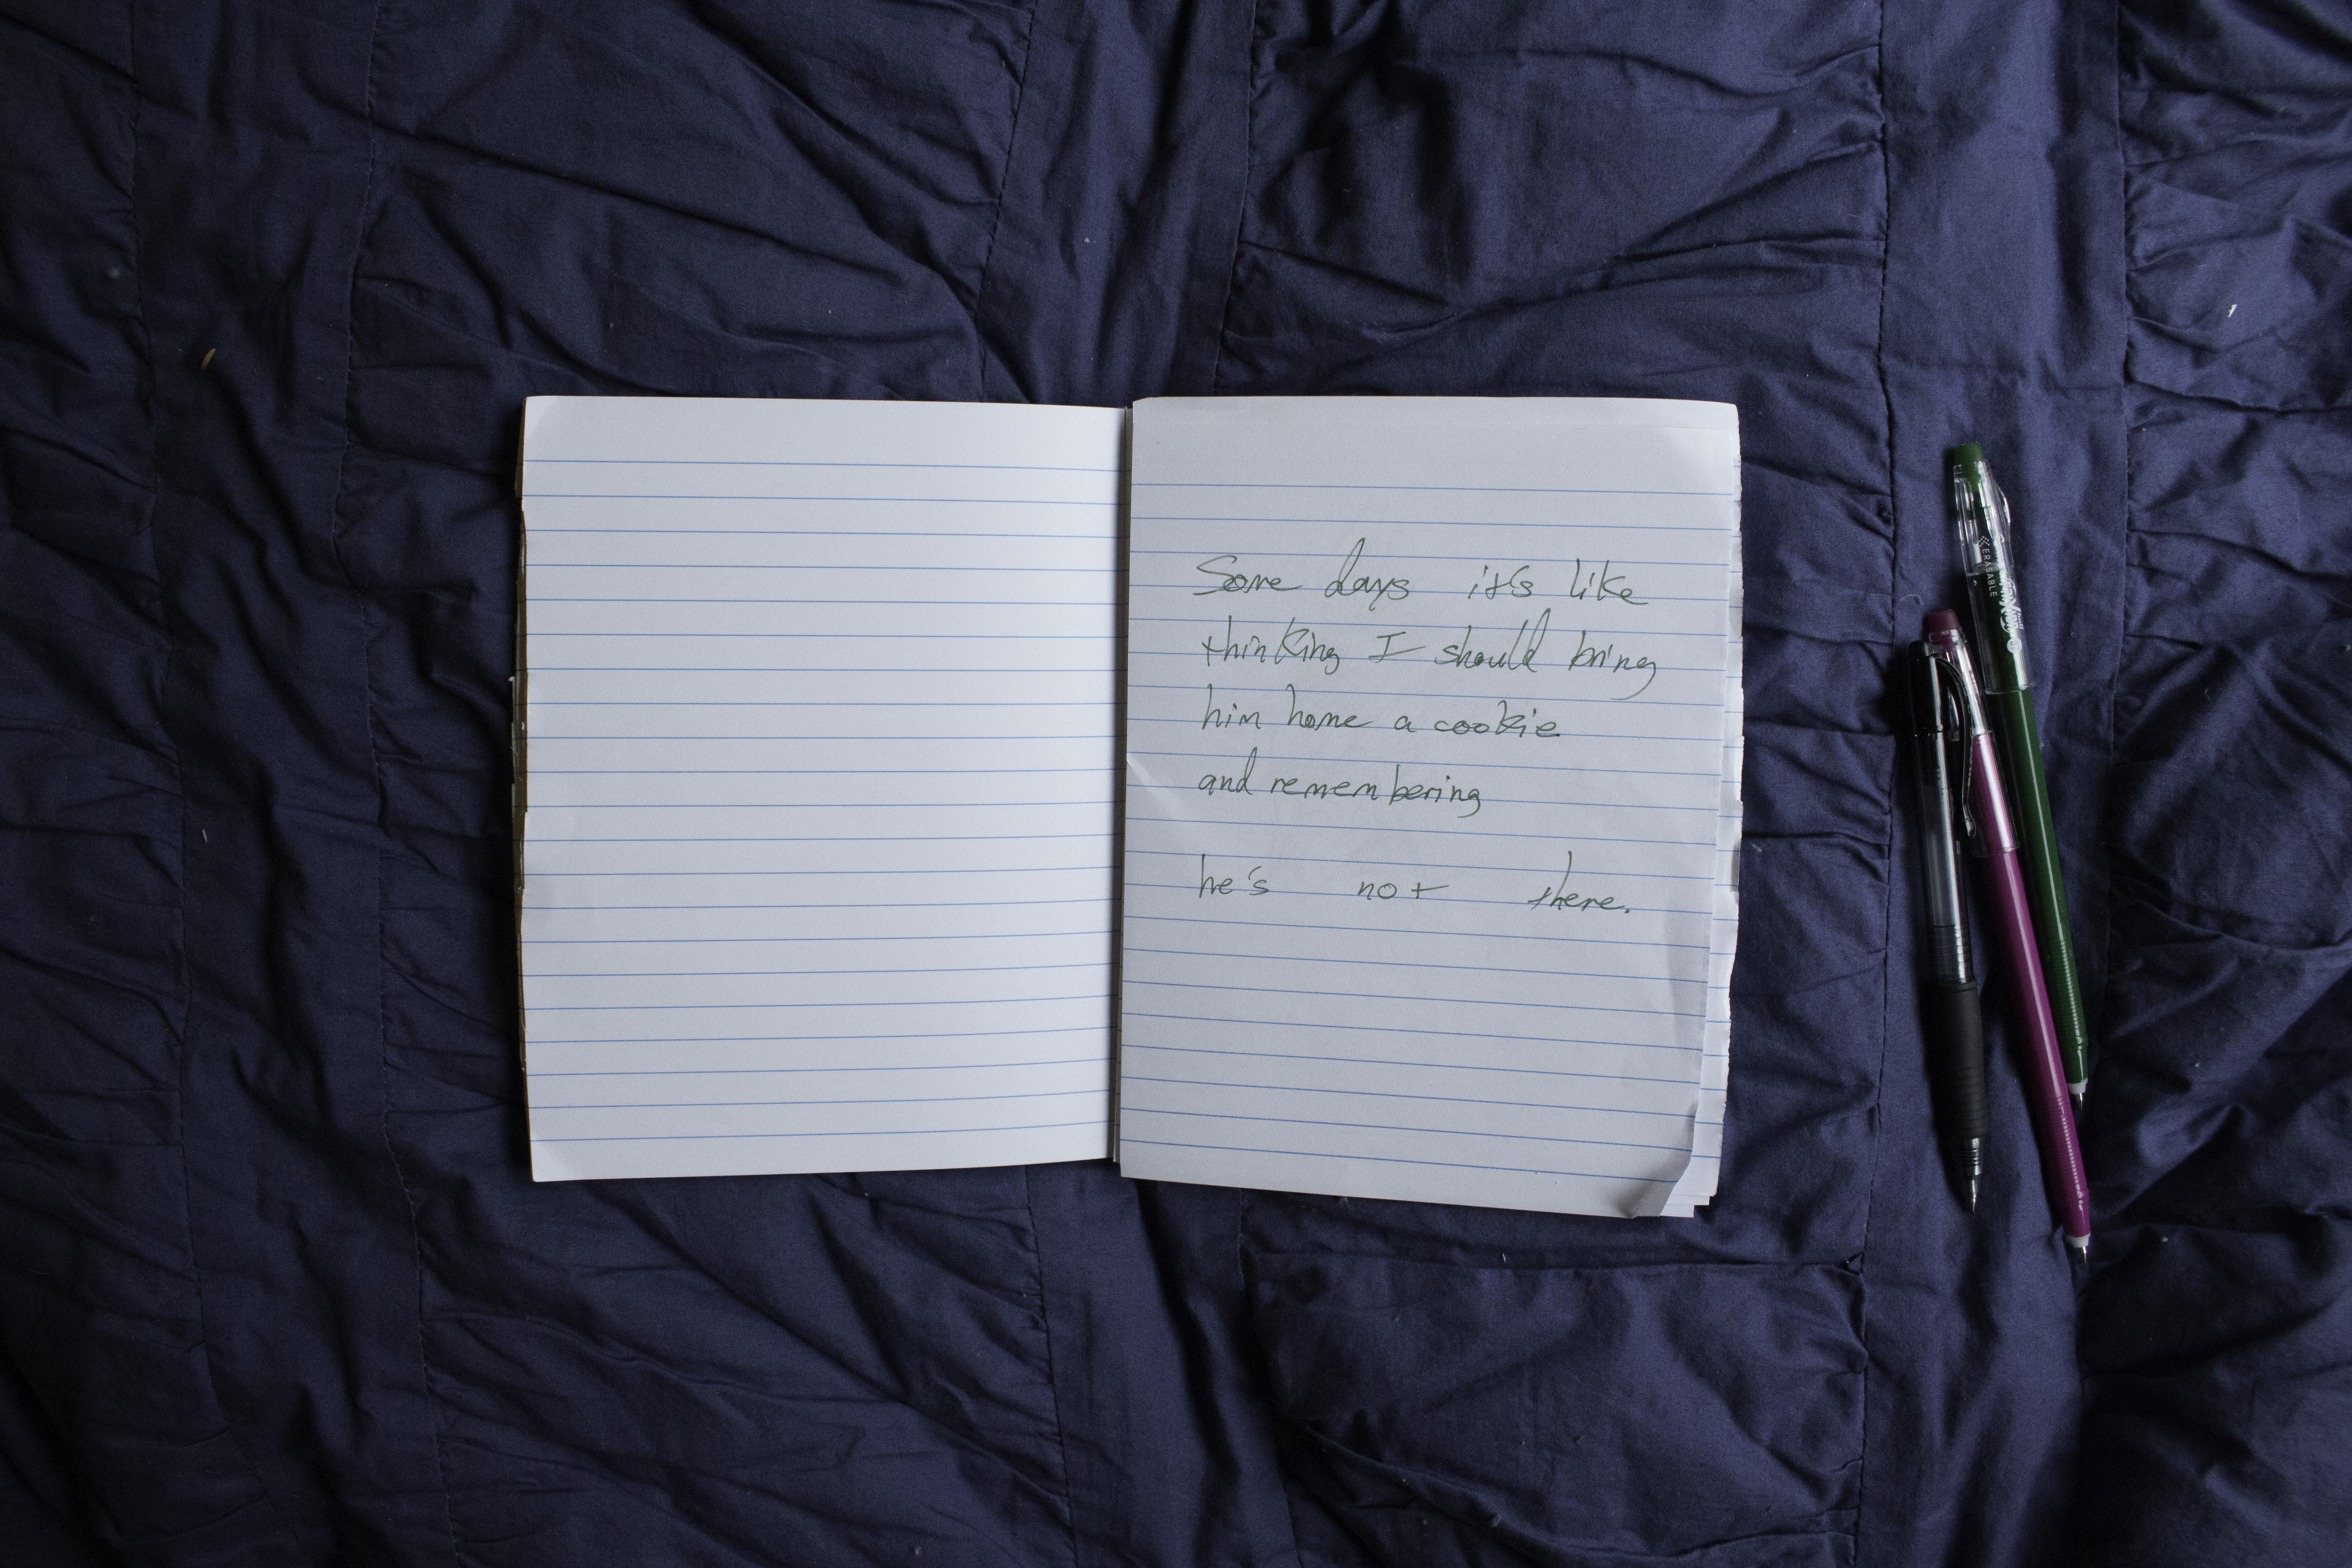 Some days it's like
thinking I should bring
him home a cookie
and remembering
he's not there.
ERASABLE